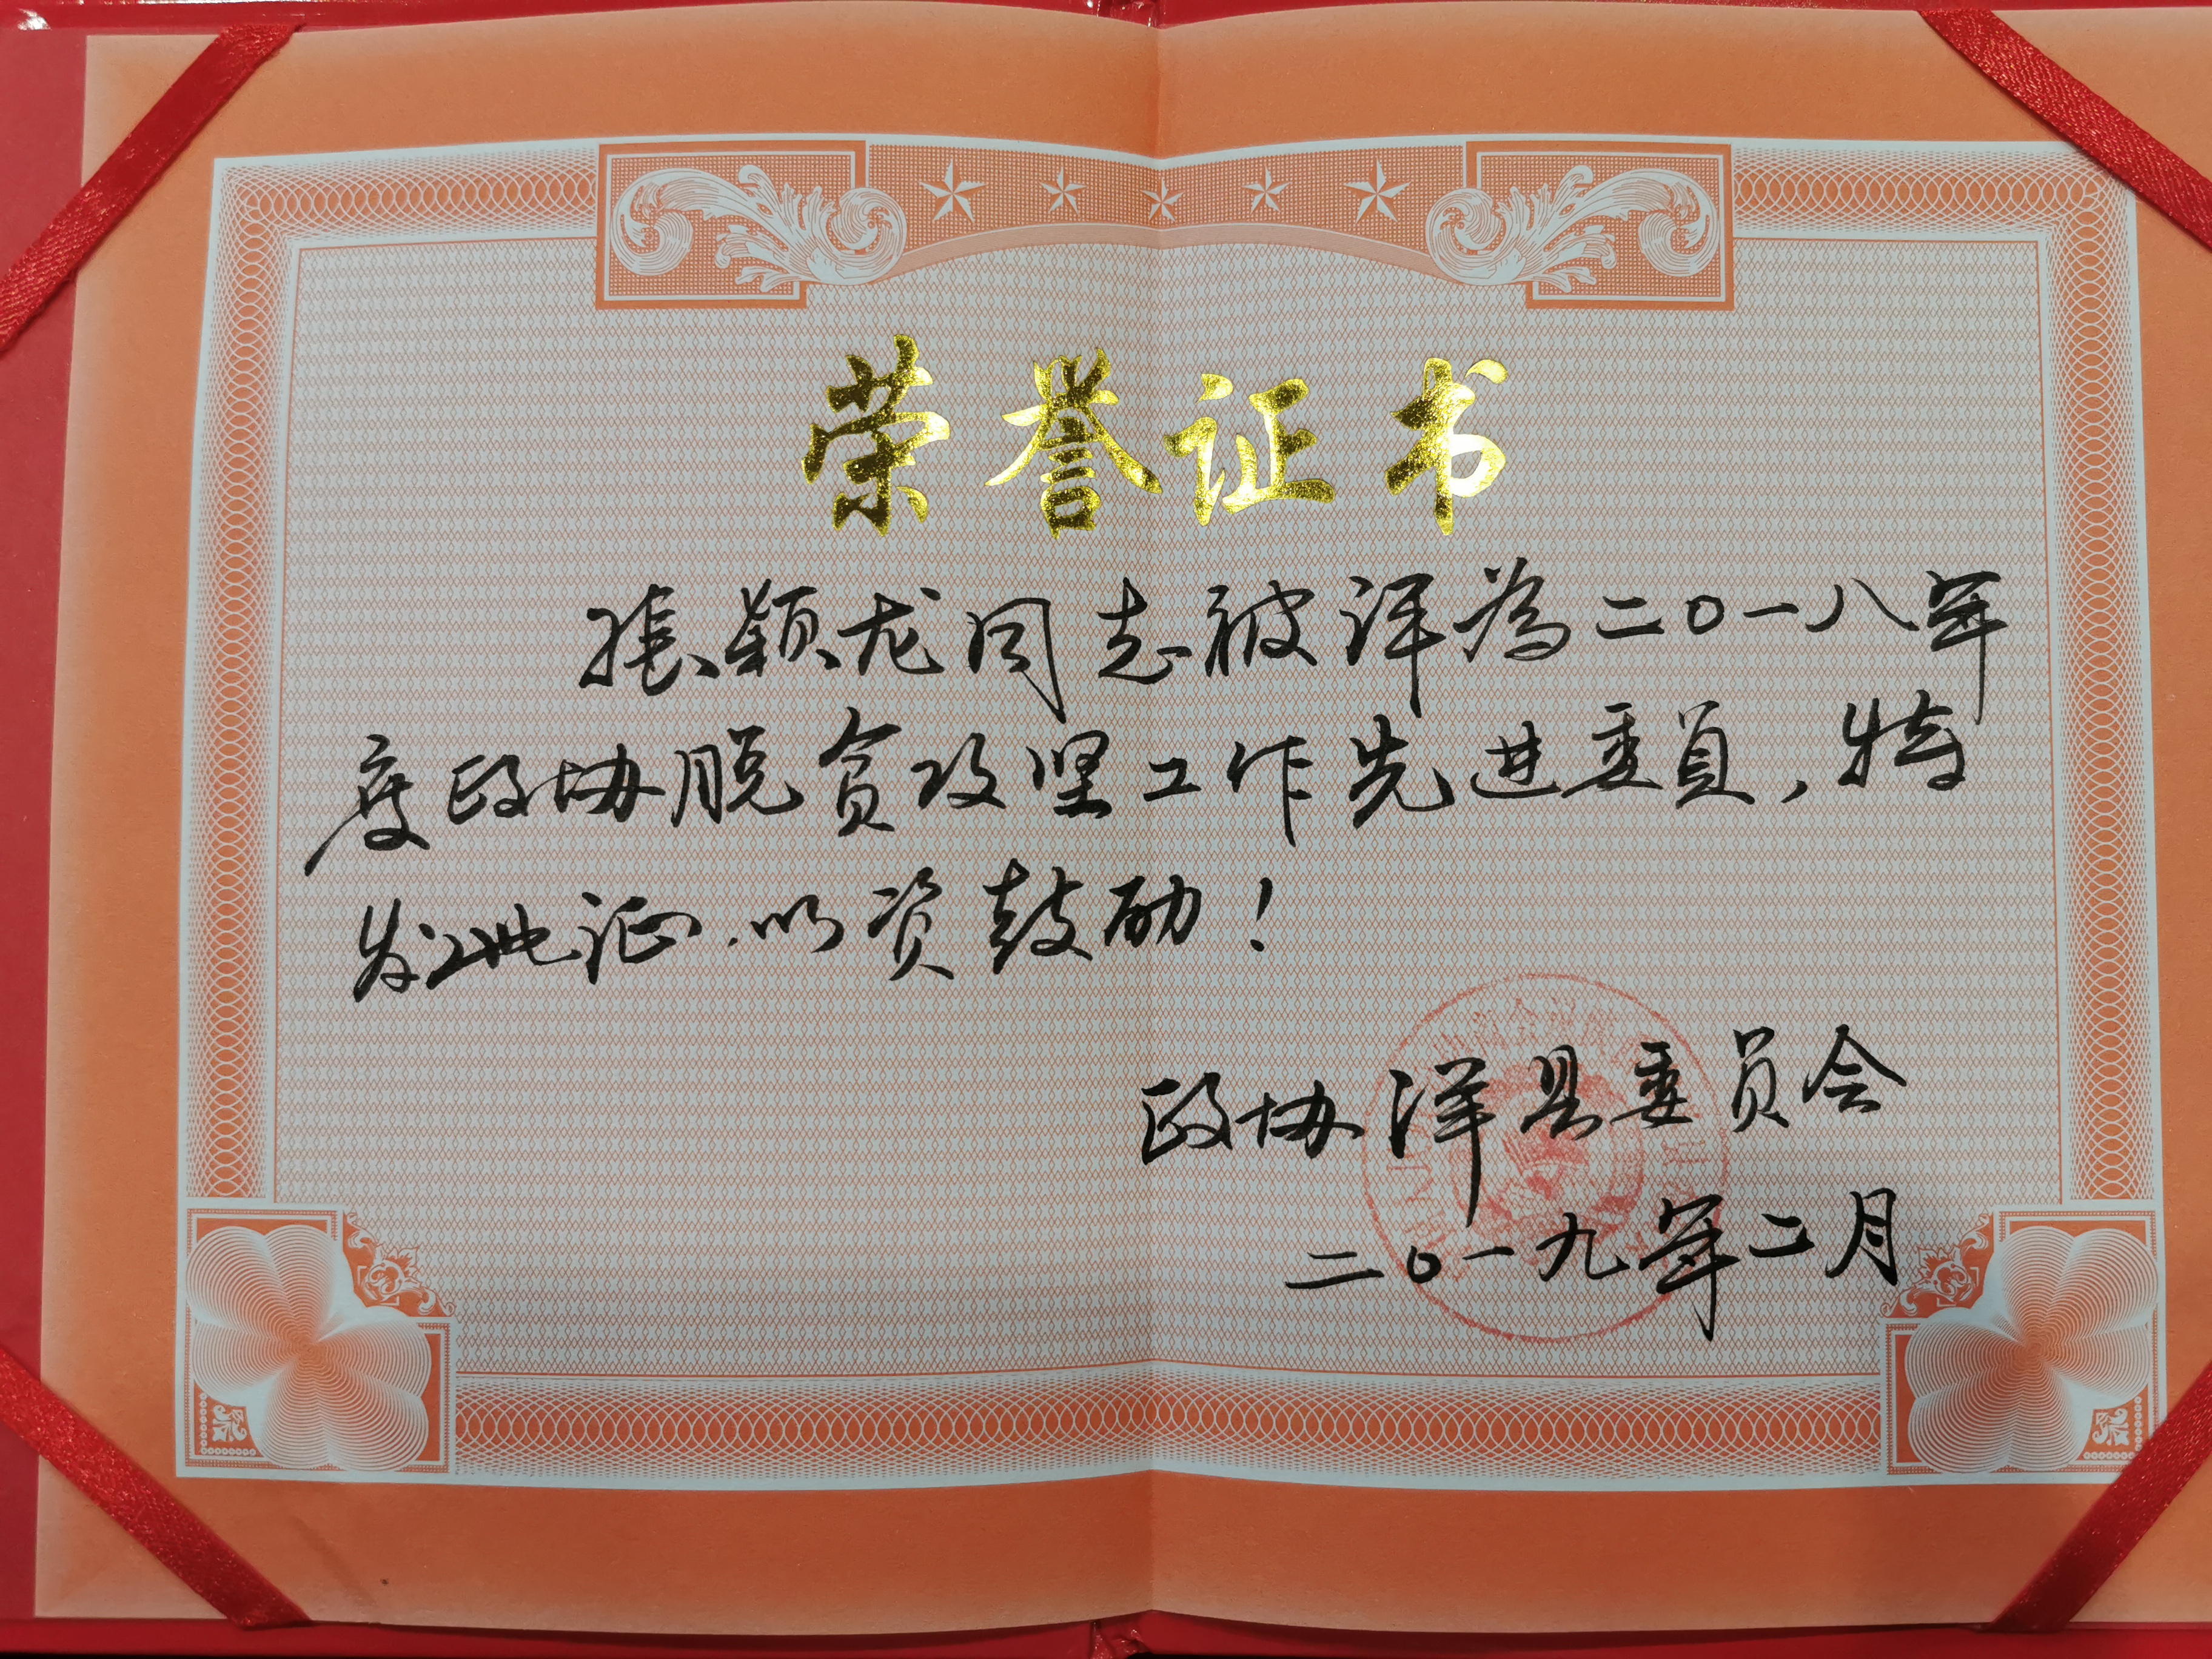 荣誉证书
张颖龙同志被评为二〇一八年
度政协脱贫攻坚工作先进委员，特
发此证.以资鼓励！
政协洋县委员会
二〇一九年二月